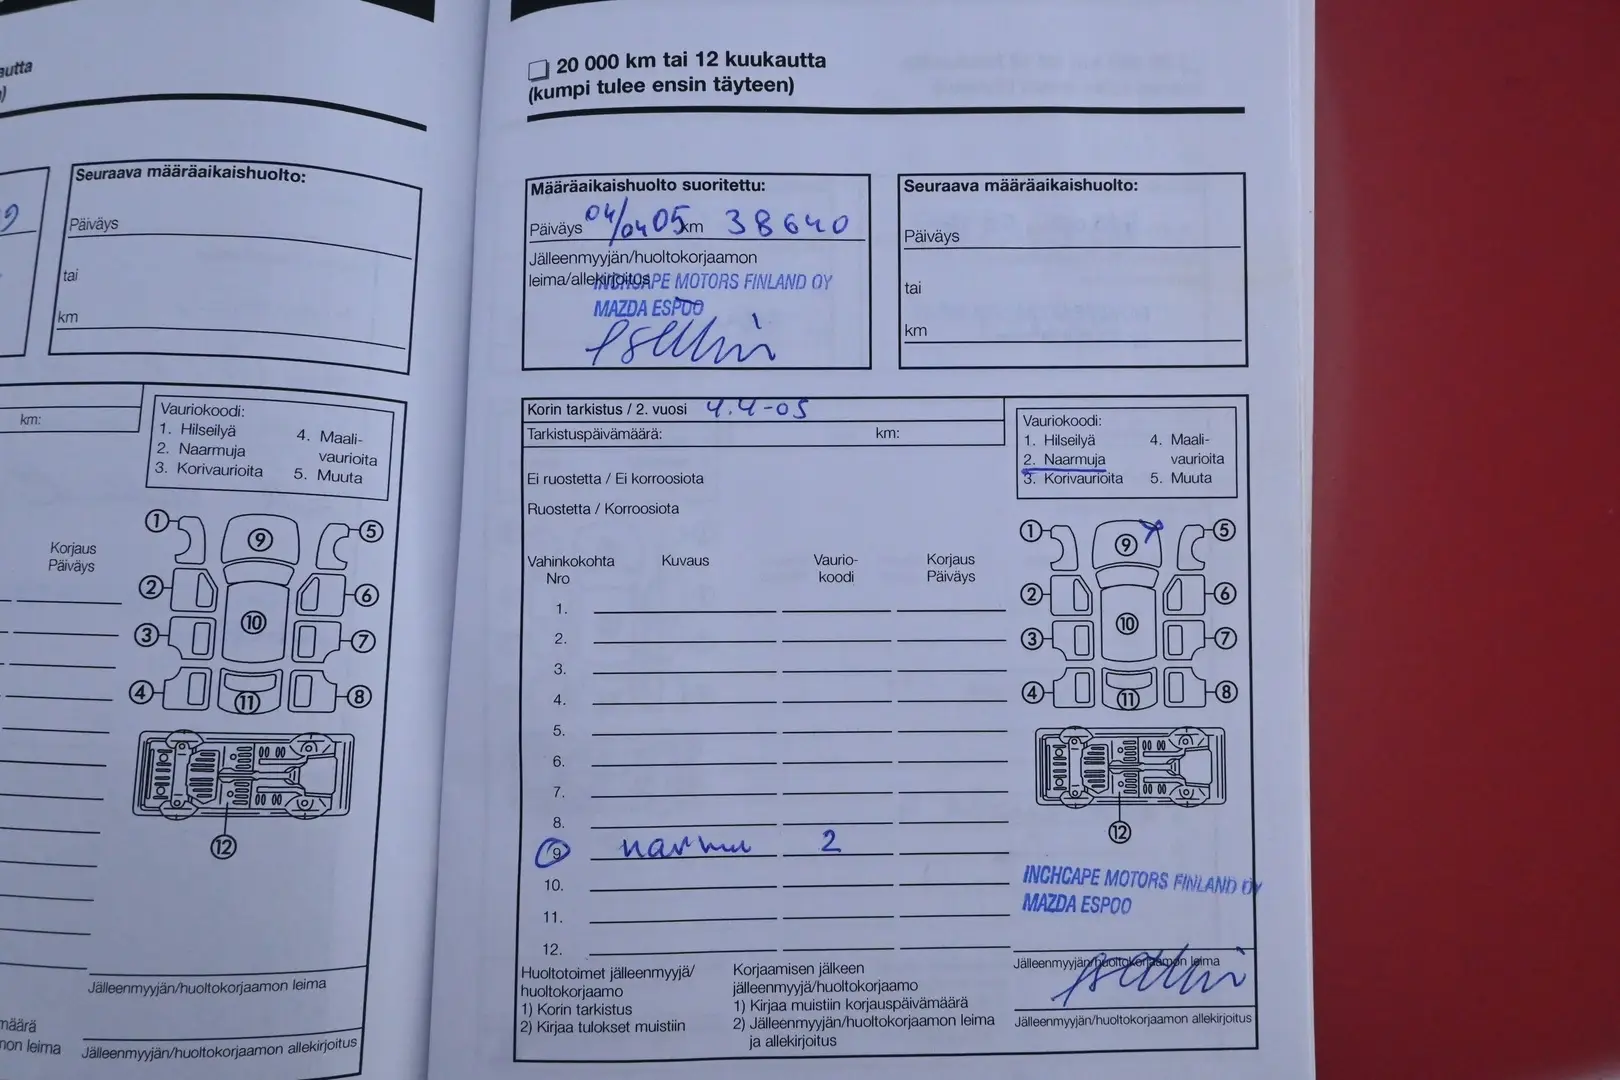 autta
)
Seuraava määräaikaishuolto:
9
Päiväys
tai
km
km:
Vauriokoodi:
1. Hilseilyä
2. Naarmuja
3. Korivaurioita
4. Maali-
vaurioita
5. Muuta
Korjaus
Päiväys
1
2
3
4
5
6
7
8
9
10
11
12
Jälleenmyyjän/huoltokorjaamon leima
määrä
non leima
Jälleenmyyjän/huoltokorjaamon allekirjoitus
20 000 km tai 12 kuukautta
(kumpi tulee ensin täyteen)
Määräaikaishuolto suoritettu:
Päiväys 04/04 05 km 38640
Jälleenmyyjän/huoltokorjaamon
leima/allekirjoitus
INCHCAPE MOTORS FINLAND OY
MAZDA ESPOO
Seuraava määräaikaishuolto:
Päiväys
tai
km
Korin tarkistus / 2. vuosi 4.4-05
Tarkistuspäivämäärä: km:
Ei ruostetta / Ei korroosiota
Ruostetta / Korroosiota
Vauriokoodi:
1. Hilseilyä
2. Naarmuja
3. Korivaurioita
4. Maali-
vaurioita
5. Muuta
Vahinkokohta Kuvaus Vaurio- Korjaus
Nro koodi Päiväys
1.
2.
3.
4.
5.
6.
7.
8.
9 narmu 2
10.
11.
12.
1
2
3
4
5
6
7
8
9
10
11
12
INCHCAPE MOTORS FINLAND OY
MAZDA ESPOO
Jälleenmyyjän/huoltokorjaamon leima
Jälleenmyyjän/huoltokorjaamon allekirjoitus
Huoltotoimet jälleenmyyjä/
huoltokorjaamo
1) Korin tarkistus
2) Kirjaa tulokset muistiin
Korjaamisen jälkeen
jälleenmyyjä/huoltokorjaamo
1) Kirjaa muistiin korjauspäivämäärä
2) Jälleenmyyjän/huoltokorjaamon leima
ja allekirjoitus